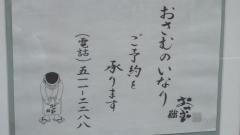 おさむのいなり
ご予約を
承ります
(電話)五一一-二二八八